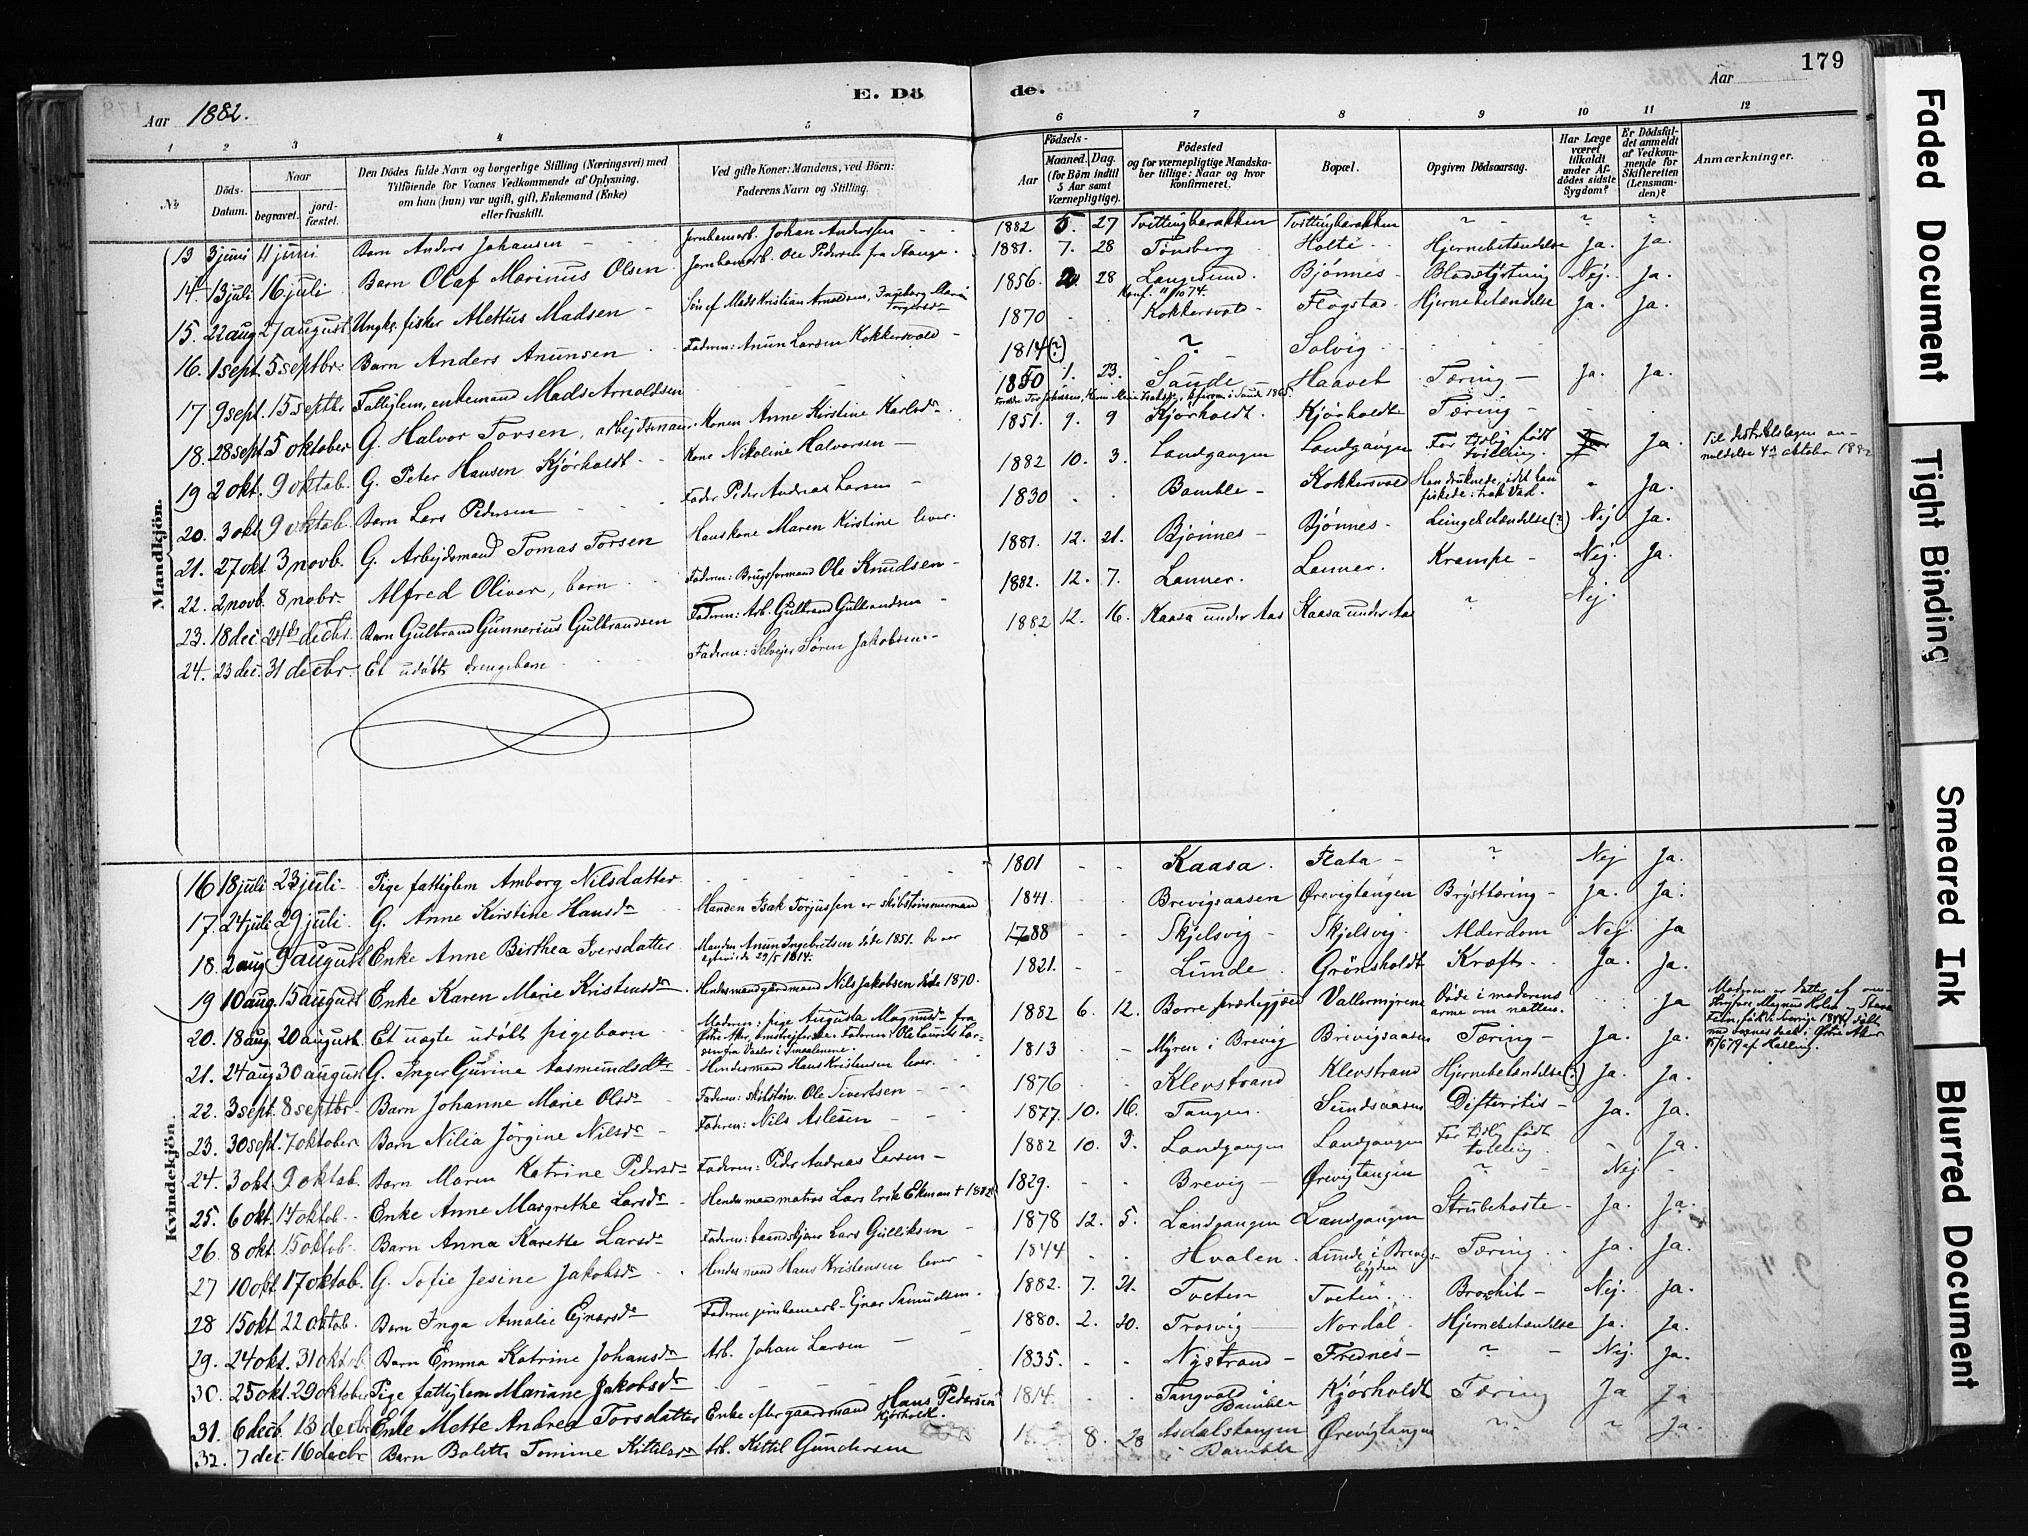 179
Aar 1882.
E. Dö
de.
Aar
1 2 3 4 5 6 7 8 9 10 11 12
№
Döds-
Datum.
Naar
begravet.
jord-
fæstet.
Den Dödes fulde Navn og borgerlige Stilling (Næringsvei) med
Tilföiende for Voxnes Vedkommende af Oplysning,
om han (hun) var ugift, gift, Enkemand (Enke)
eller fraskilt.
Ved gifte Koner: Mandens, ved Börn:
Faderens Navn og Stilling.
Födsels-
Aar
Maaned. Dag.
(for Börn indtil
5 Aar samt
Værnepligtige).
Födested
og for værnepligtige Mandska-
ber tillige: Naar og hvor
konfirmeret.
Bopæl.
Opgiven Dödsaarsag.
Har Læge
været
tilkaldt
under Af-
dödes sidste
Sygdom?
Er Dödsfal-
det anmeldt
af Vedkom-
mende for
Skifteretten
(Lensman-
den)?
Anmærkninger.
Mandkjön.
13 3 juni 11 juni Barn Anders Johansen Jernbanearb. Johan Anderssen 1882 5. 27 Tvittingbarakken Tvittingbarakken ? ? ?
14. 13 juli 16 juli Barn Olaf Marinus Olsen Jernbanearb. Ole Pedersen fra Stange. 1881. 7. 28 Tønsberg Holte Hjernebetændelse Ja. Ja.
15. 22 aug 27 august Ungk. fisker Alettus Madsen Søn af Mads Kristian Arnoldsen, Ingeborg Marie 1856. 28 Langesund. Bjønnes Blodstyrtning Nej. Ja.
Konf. 11/10 74.
16. 1 sept. 5 septbr. Barn Anders Anunsen Faderen: Anun Larsen Kokkersvold 1870 Kokkersvold Flogstad Hjernebetændelse Ja. Ja.
17 9 sept. 15 septbr Fattiglem, enkemand Mads Arnoldsen 1814 (?) ? Solvig
18. 28 sept. 5 oktober G. Halvor Torsen, arbejdsmand. Konen Anne Kirstine Karlsdr. 1850 1. 23. Sande Haavet Tæring Ja. Ja.
19 2 okt. 9 oktob. G. Peter Hansen Kjørholdt Kone Nikoline Halvorsen 1851. 9. 9 Kjørholdt. Kjørholdt Tæring
20. 3 okt. 9 oktob. Barn Lars Pedersen Fader Peder Andreas Larsen 1882 10. 3. Landgangen Landgangen For tidlig født Tvilling. Ja. Til distriktslægen an-
meldelse 4de oktobr 1882
21. 27 okt 3 novb. G. Arbejdsmand Tomas Torsen Hans kone Maren Kirstine lever. 1830 Bamble Kokkersvold Han druknede, idet han
fiskede: Trak Vad. Ja.
22. 2 novb. 8 nobr. Alfred Oliver, barn Faderen: Brugsformand Ole Knudsen 1881. 12. 21. Bjønnes Bjønnes. Lungebetændelse (?) Nej Ja.
23. 18 dec. 24de decbr. Barn Gulbrand Gunnerius Gulbrandsen Faderen: Arb. Gulbrand Gulbrandsen 1882. 12. 7. Lanner. Lanner. Krampe Nej. Ja.
24. 23 dec. 31 decbr. Et udøbt drengebarn Faderen: Selvejer Søren Jakobsen. 1882 12. 16. Kaasa under Aas Kaasa under Aas ? Nej.
Kvindekjön.
16 18 juli 23 juli Pige fattiglem Amborg Nilsdatter 1801 Kaasa. Flata ? Nej Ja.
17. 24 juli 29 juli. G. Anne Kirstine Hansdr Manden Isak Torjussen er skibstømmermand 1841. Brevigsaasen Ørevigtangen Brysttæring Ja. Ja.
18. 2 aug 9 august Enke Anne Birthea Iversdatter Manden Anun Ingebretsen døde 1851. 1788 Skjelsvig Skjelsvig. Alderdom Nej. Ja
19 10 aug. 15 august Enke Karen Marie Kristensdr. Hendes mand gårdmand Nils Jakobsen døde 1870. 1821. Lunde Grönsholdt Kræft Ja. Ja.
20. 18 aug. 20 august. Et uægte udøbt pigebarn Moderen: pige Augusta Magnusdr fra 1882 6. 12. Borre præstegjæld Vallermyrene Døde i moderens
arme om natten. Ja
21. 24 aug 30 august G. Inger Gurina Aasmundsdtr Hendes mand Hans Kristensen lever. 1813 Myren i Brevig Brevigsaasen Tæring Ja. Ja.
22. 3 sept. 8 septbr. Barn Johanne Marie Olsdr Faderen: skibstøm. Ole Sivertsen 1876 Klevstrand Klevstrand Hjernebetændelse (?) Ja. Ja.
23. 30 sept. 7 oktober. Barn Nilia Jörgine Nilsdr Faderen: Nils Aslesen 1877. 10. 16. Tangen. Sundsaasen Difteritis Ja. Ja.
24. 3 okt. 9 oktob. Barn Maren Katrine Pedersdr Faderen: Peder Andreas Larsen 1882 10. 3. Landgangen Landgangen For tidlig født
tvilling. Ja.
25. 6 okt. 14 oktob. Enke Anne Margrethe Larsdr Hendes mand matros Lars Erik Ekman 1829. Brevig Ørevigtangen ? Nej.
26. 8 okt. 15 oktob. Barn Anna Karette Larsdr Faderen: baandskjærer Lars Gulliksen 1878 12. 5. Landgangen Landgangen Strubehoste Ja. Ja.
27 10 okt 17 oktob. G. Sofie Jesine Jakobsdr Hendes mand Hans Kristensen lever 1844 Hvalen. Lunde i Brevigs-
bygden Tæring Ja. Ja.
28 15 okt. 22 oktob. Barn Inga Amalie Ejnarsdr Faderen jernbanearb. Ejnar Samuelsen. 1882. 7. 21. Tveten Tveten. Bronkit Nej. Ja.
29. 24 okt. 31 oktob. Barn Emma Katrine Johansdr Arb. Johan Larsen 1880. 2. 20. Trosvig Nordal. Hjernebetændelse Ja. Ja.
30. 25 okt. 29 oktober Pige fattiglem Mariane Jakobsdr 1835. Nystrand Frednes ? Nej. Ja.
31. 6 decb. 13 decbr Enke Mette Andrea Torsdatter Enke efter gaardmand Hans Pedersen Kjørholdt. 1814. Tangvald i
Bamble Kjörholdt Tæring Ja Ja
32. 7 dec 16 decbr. Barn Bolette Tomine Kittilsdr Arb. Kittil Gundersen 8. 28 Asdalstangen
i Bamble Ørevigtangen ? ? Ja.
Faded Document
Tight Binding
Smeared Ink
Blurred Document